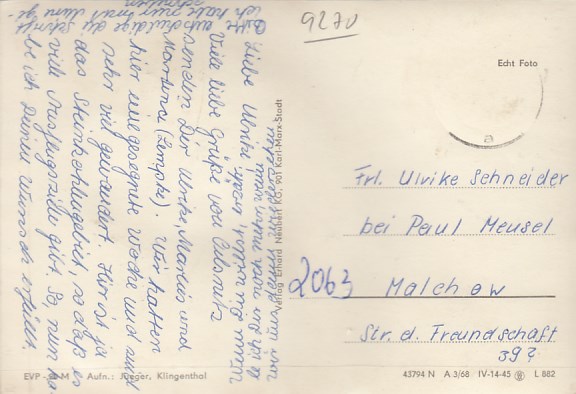 9270
Echt Foto
Liebe Ulrike!
Viele liebe Grüße von Oelsnitz
senden Dir Ulrike, Markus und
Martina (Lempke). Wir hatten
hier eine gesegnete Woche und sind
sehr viel gewandert. Hier ist ja
das Steinkohlengebiet, so daß es
viele Ausflugsziele gibt. So, nun ha-
be ich Deinen Wunsch erfüllt.
Bitte entschuldige die Schrift
ich habe zum
Verlag Erhard Neubert KG, 901 Karl-Marx-Stadt
Frl. Ulrike Schneider
bei Paul Meusel
2063 Malchow
Str. d. Freundschaft
39?
EVP M Aufn.: Jaeger, Klingenthal
43794 N A 3/68 IV-14-45 L 882